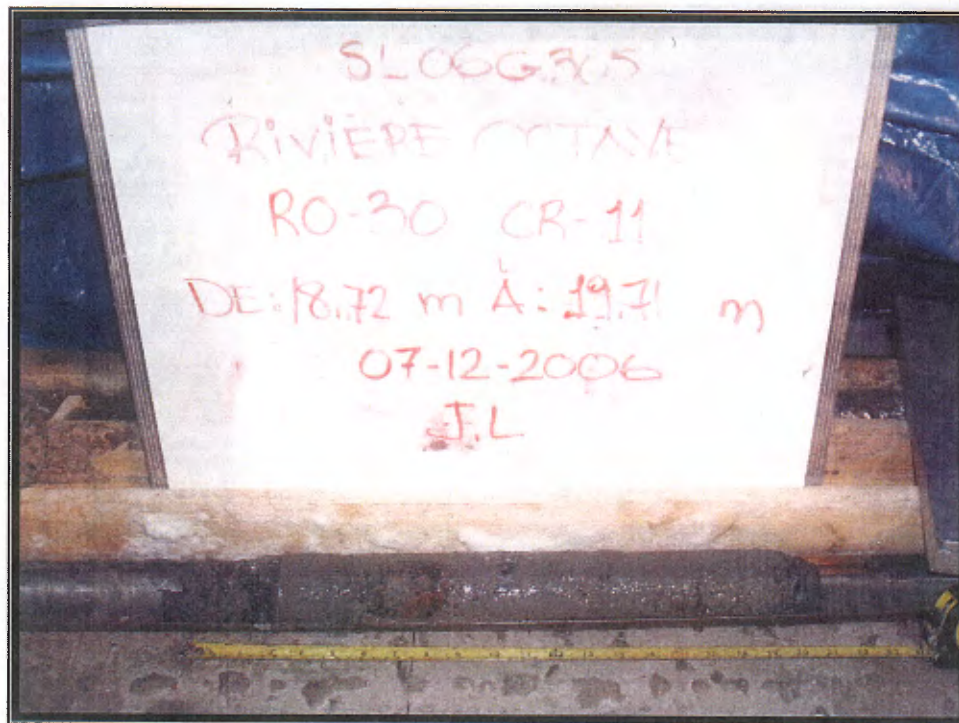 SL06G365
RIVIÈRE OCTAVE
RO-30 CR-11
DE: 18.72 m À: 19.71 m
07-12-2006
J.L